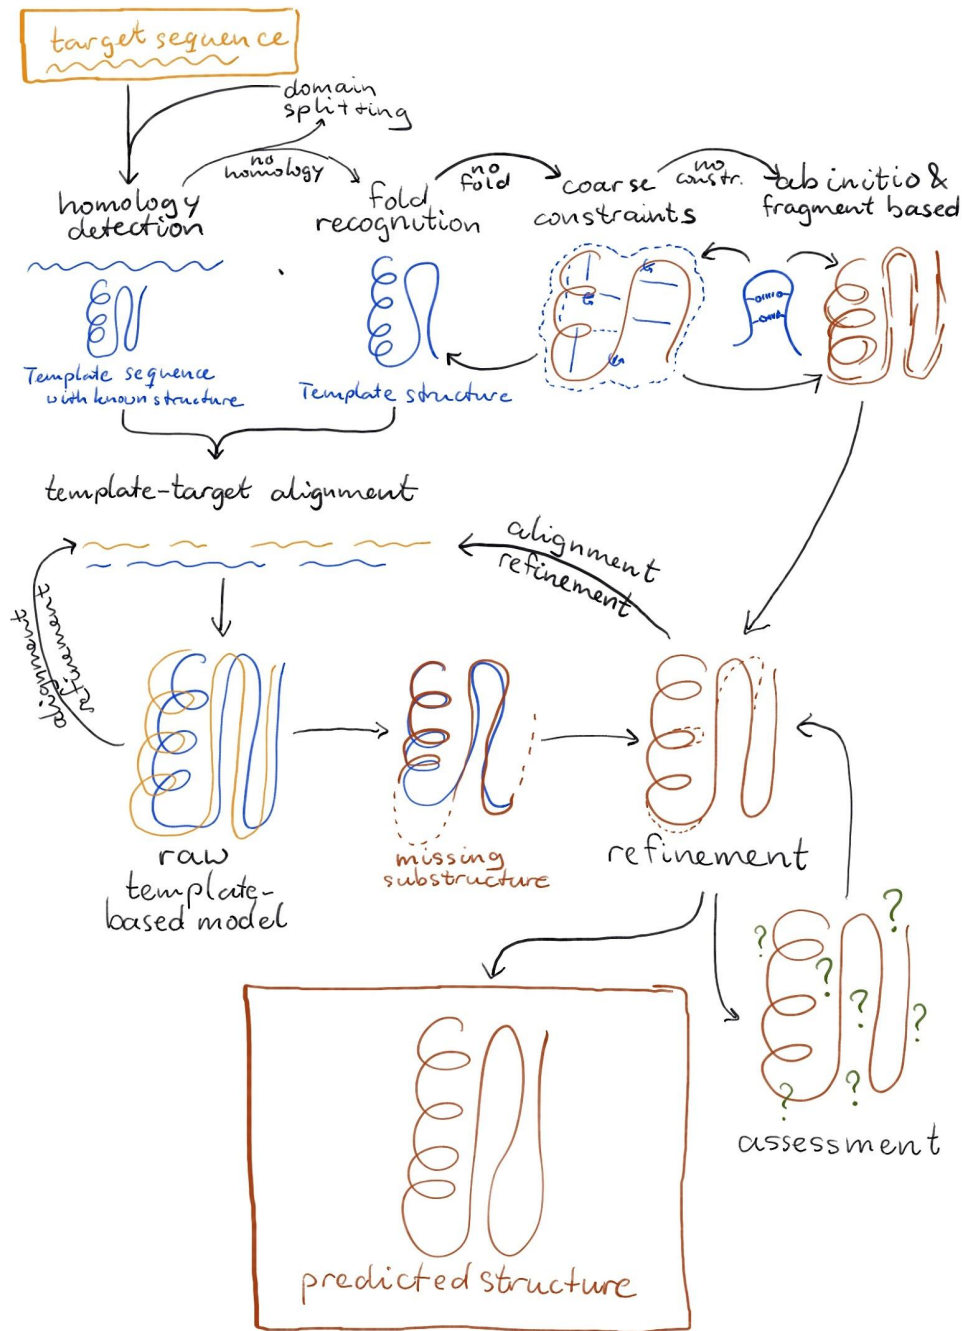 target sequence
domain
splitting
no
homology
no
fold
no
constr.
homology
detection
fold
recognition
coarse
constraints
ab initio &
fragment based
Template sequence
with known structure
Template structure
template-target alignment
alignment
refinement
alignment
refinement
raw
template-
based model
missing
substructure
refinement
? ? ? ? ? ? ?
assessment
predicted structure